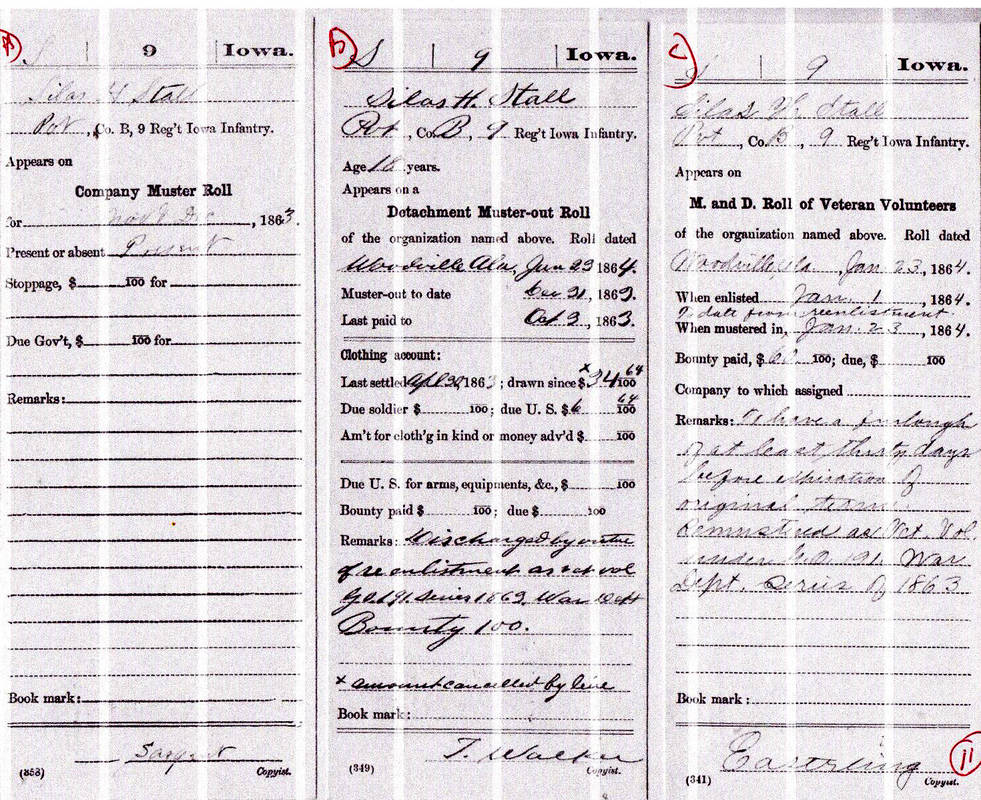 a
S | 9 | Iowa.
Silas H Stall
Pvt, Co. B, 9 Reg't Iowa Infantry.
Appears on
Company Muster Roll
for Nov & Dec, 1863.
Present or absent Present
Stoppage, $ 100 for
Due Gov't, $ 100 for
Remarks:
Book mark:
Sargent
(358) Copyist.
b
S | 9 | Iowa.
Silas H. Stall
Pvt, Co. B, 9 Reg't Iowa Infantry.
Age 18 years.
Appears on a
Detachment Muster-out Roll
of the organization named above. Roll dated
Woodville Ala, Jan 23 1864.
Muster-out to date Dec 31, 1863.
Last paid to Oct 3, 1863.
Clothing account:
Last settled Apl 30, 1863; drawn since $ x 34 64/100
Due soldier $ 100; due U. S. $ 6 64/100
Am't for cloth'g in kind or money adv'd $ 100
Due U. S. for arms, equipments, &c., $ 100
Bounty paid $ 100; due $ 100
Remarks: Discharged by virtue
of re enlistment as vet vol
G.O. 191. series 1863. War Dept
Bounty 100.
x amount cancelled by line
Book mark:
T. Walker
(349) Copyist.
c
S | 9 | Iowa.
Silas H. Stall
Pvt, Co. B, 9 Reg't Iowa Infantry.
Appears on
M. and D. Roll of Veteran Volunteers
of the organization named above. Roll dated
Woodville, Ala, Jan. 23, 1864.
When enlisted Jan. 1, 1864.
To date from reenlistment.
When mustered in, Jan. 23, 1864.
Bounty paid, $ 60 100; due, $ 100
Company to which assigned
Remarks: To have a furlough
of at least thirty days
before expiration of
original term.
Remustered as Vet. Vol.
under G.O. 191. War
Dept. series of 1863
Book mark:
Easterling
(341) Copyist.
11